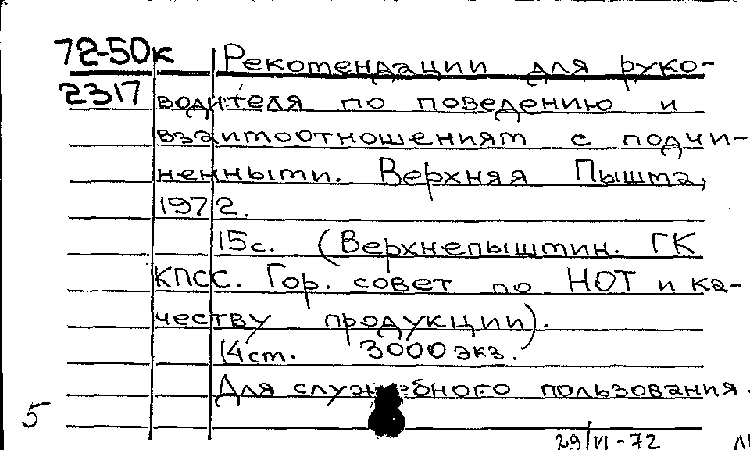 72-50к Рекомендации для руко-
2317 водителя по поведению и
взаимоотношениям с подчи-
ненными. Верхняя Пышма,
1972.
15с. (Верхнепышмин. ГК
КПСС. Гор. совет по НОТ и ка-
честву продукции).
14см. 3000 экз.
Для служебного пользования.
5
29/VI-72